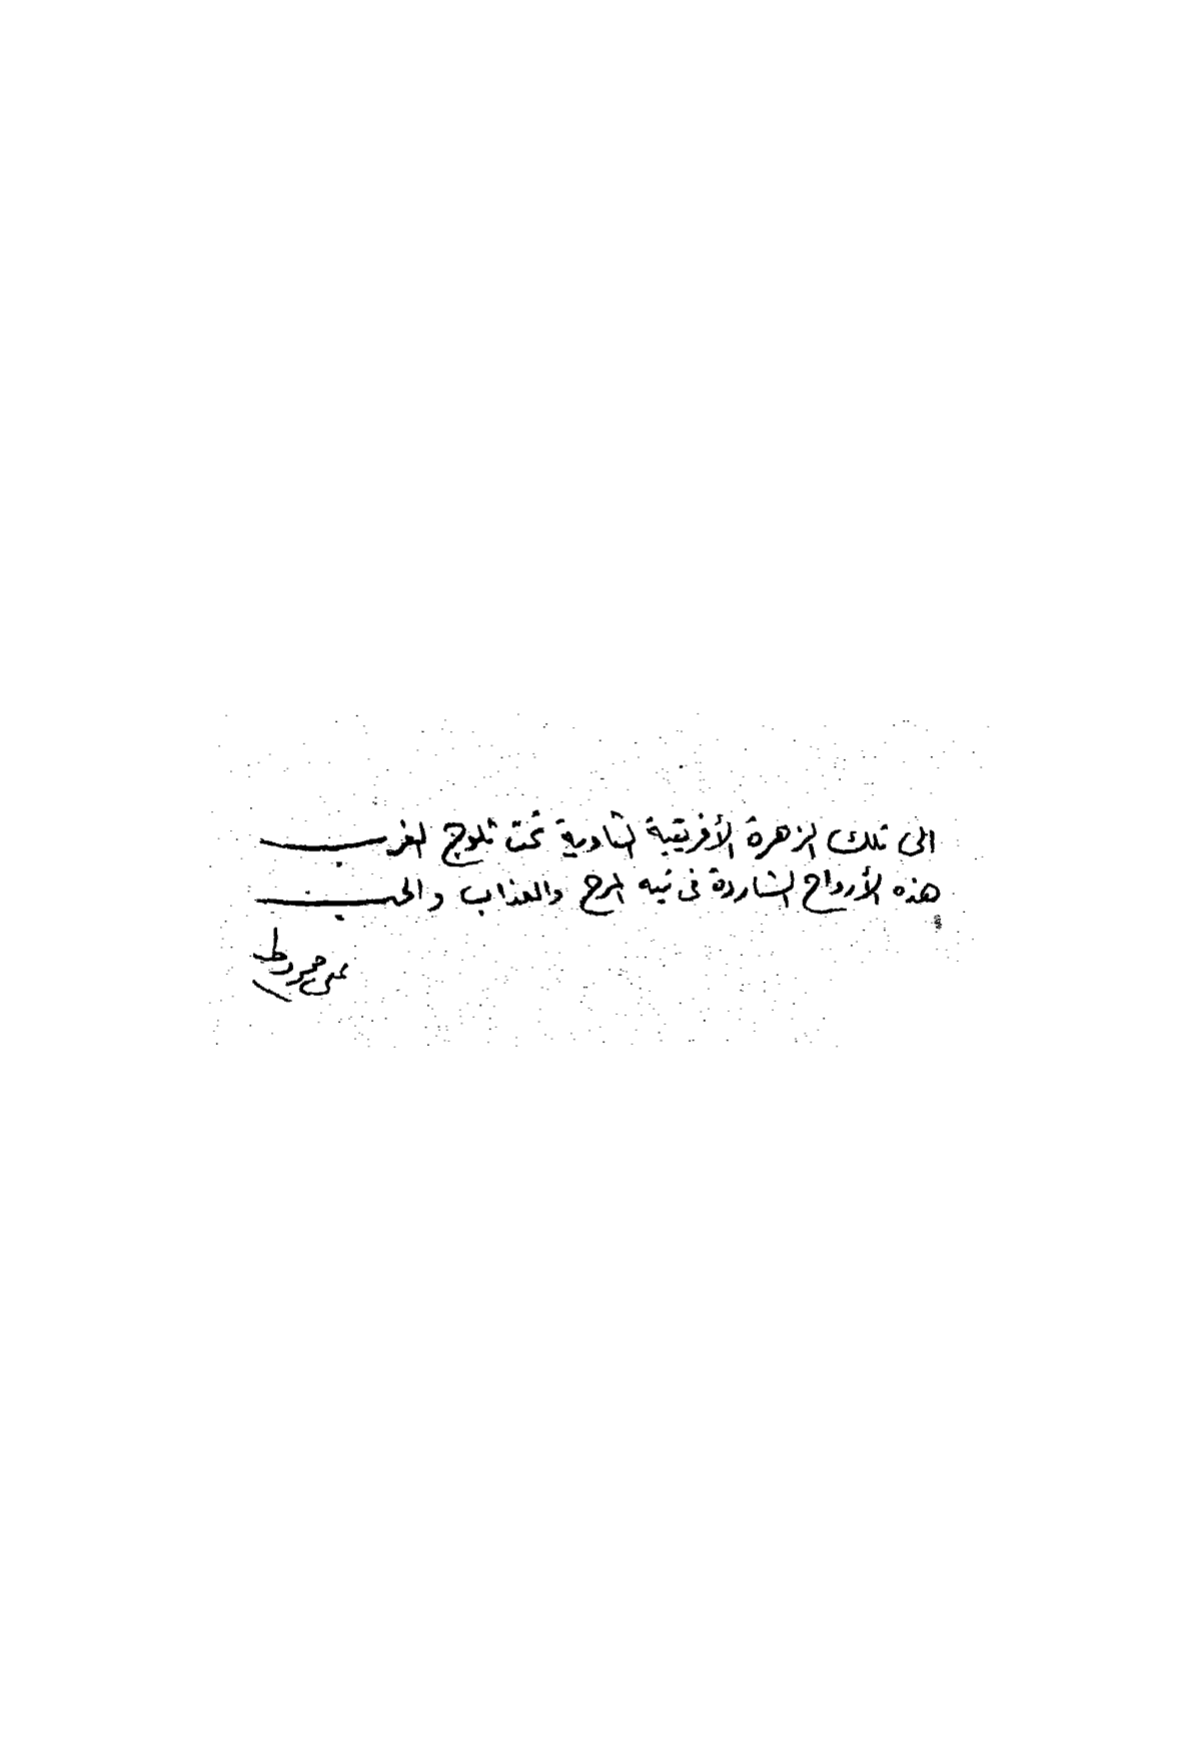 الى تلك الزهرة الأفريقية الثاوية تحت ثلوج الغرب
هذه الأرواح الشاردة فى تيه المرح والعذاب والحنين
على